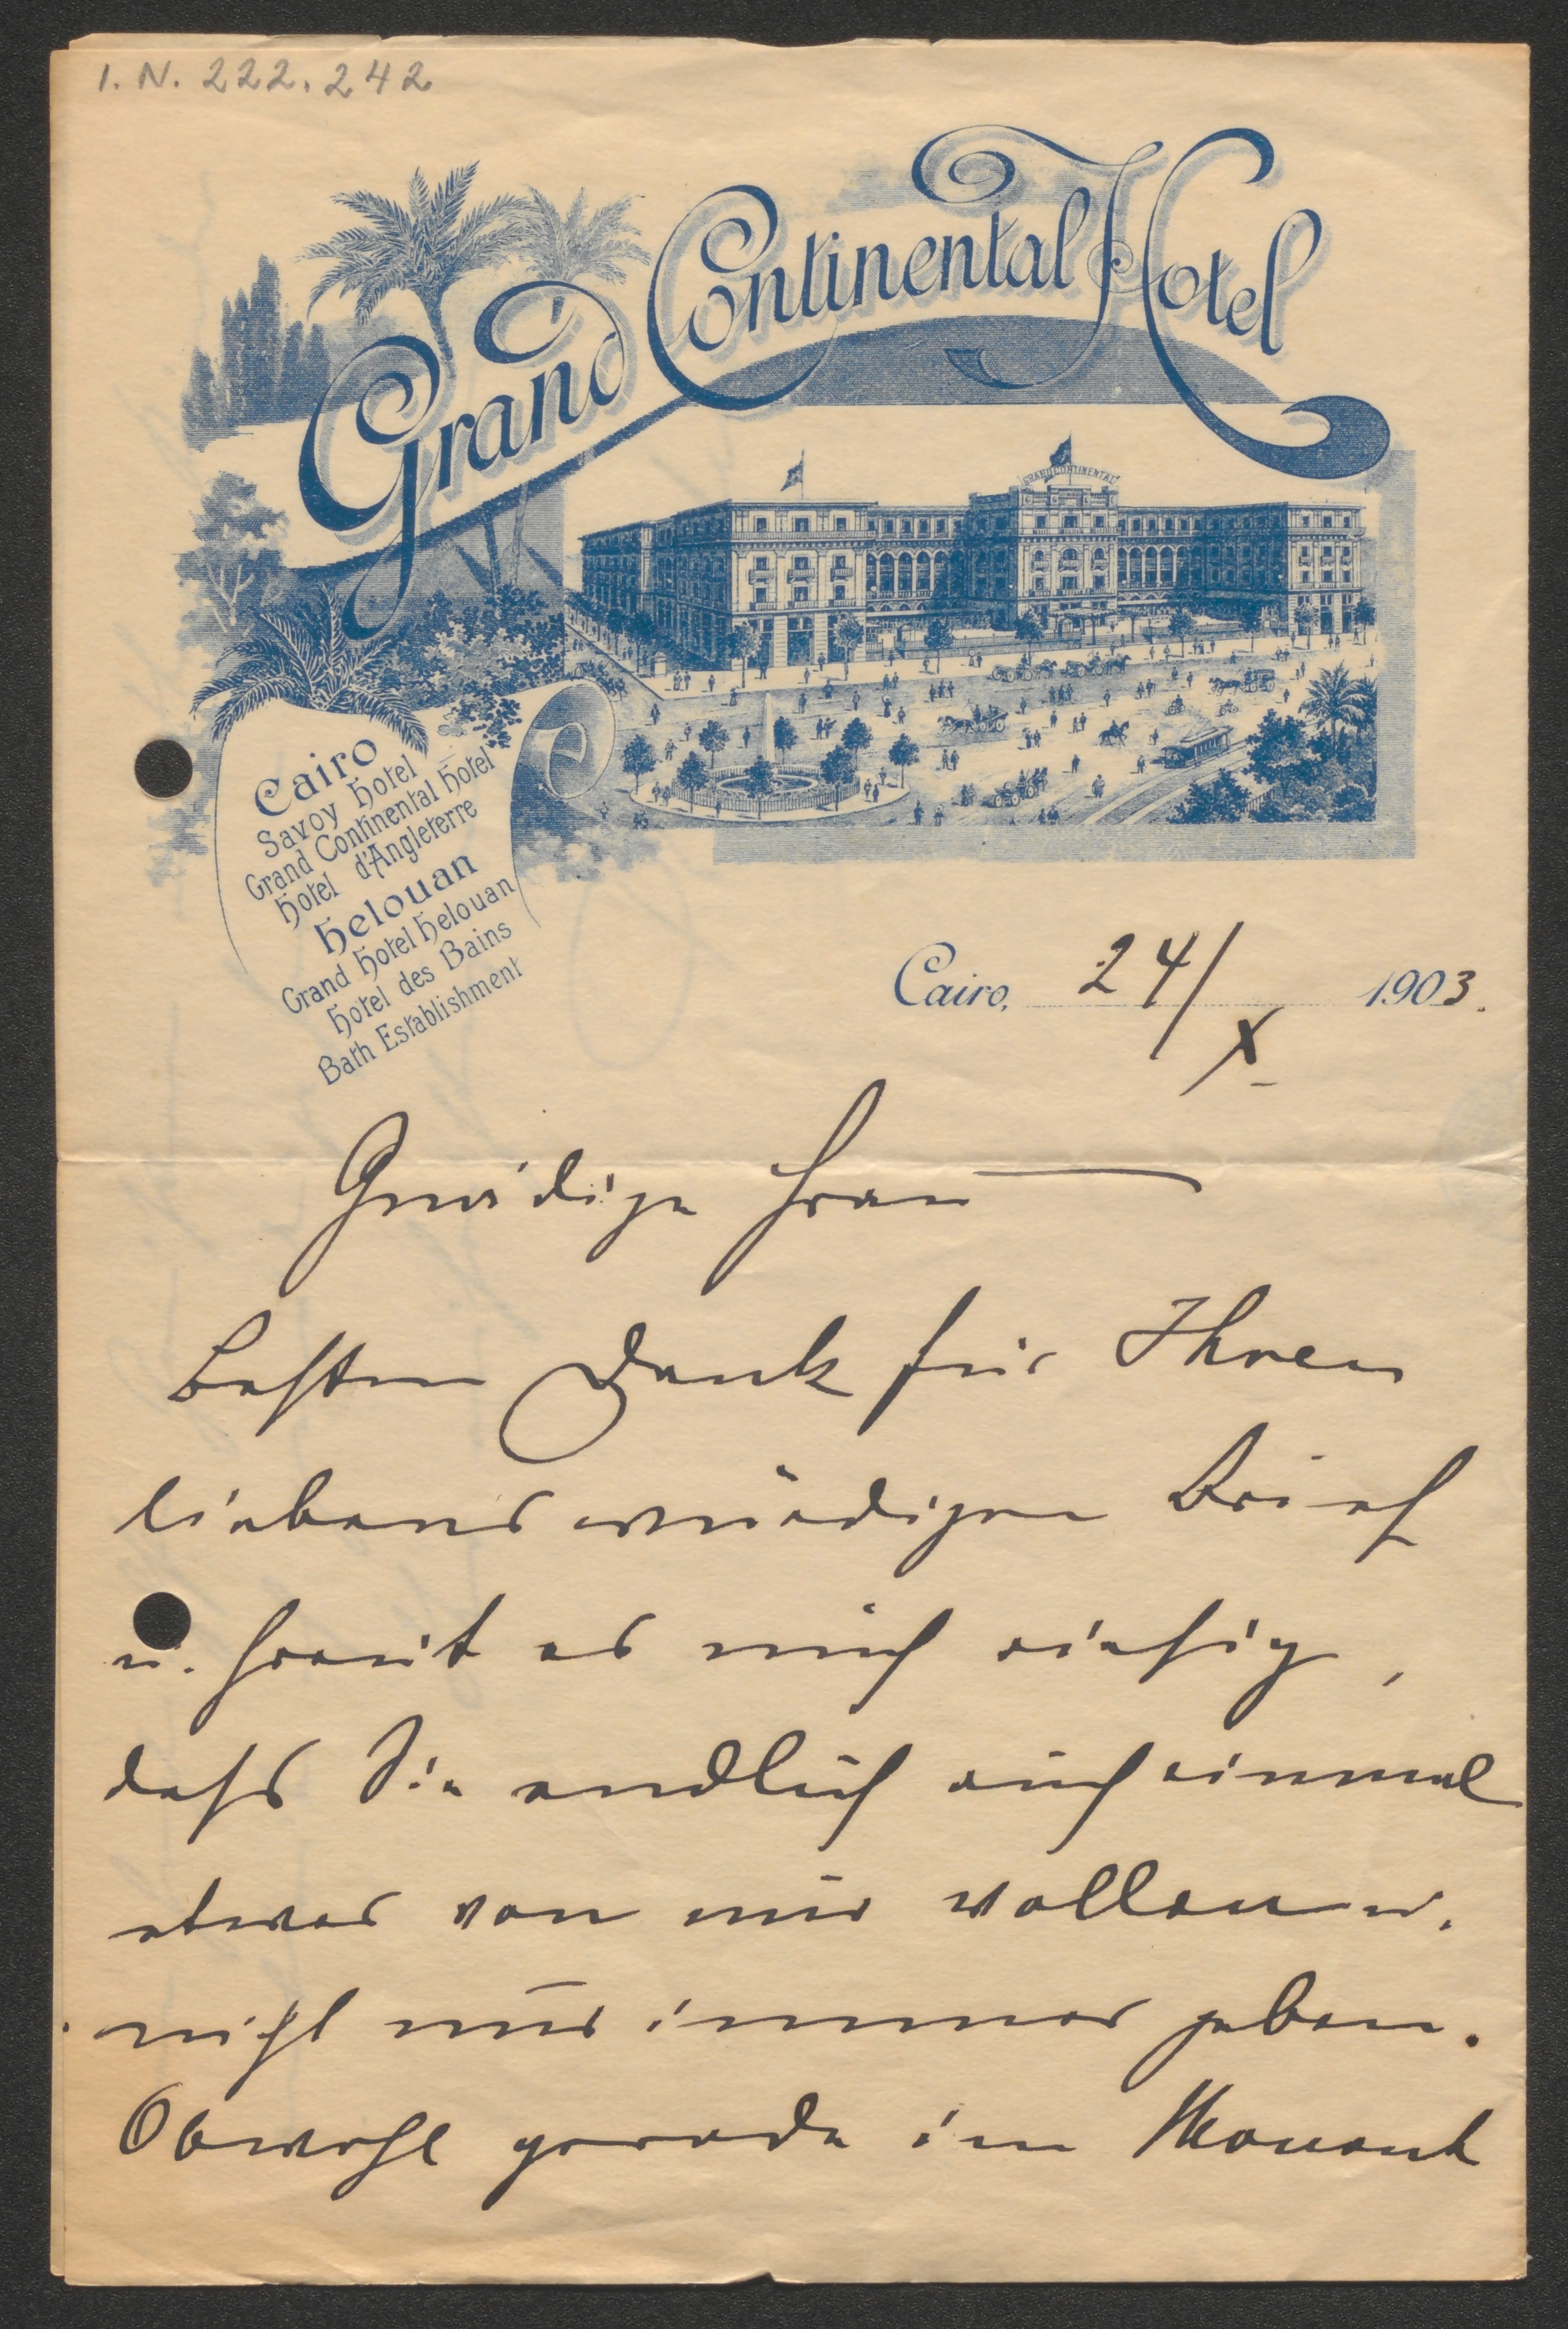 I. N. 222.242
Grand Continental Hotel
GRAND CONTINENTAL
Cairo
Savoy Hotel
Grand Continental Hotel
Hotel d'Angleterre
Helouan
Grand Hotel Helouan
Hotel des Bains
Bath Establishment
Cairo, 24/X 1903.
Gnädige Frau
Besten Dank für Ihren
liebenswürdigen Brief
u. freut es mich riesig,
dass Sie endlich auch einmal
etwas von mir wollen u.
nicht nur immer geben.
Obwohl gerade im Moment